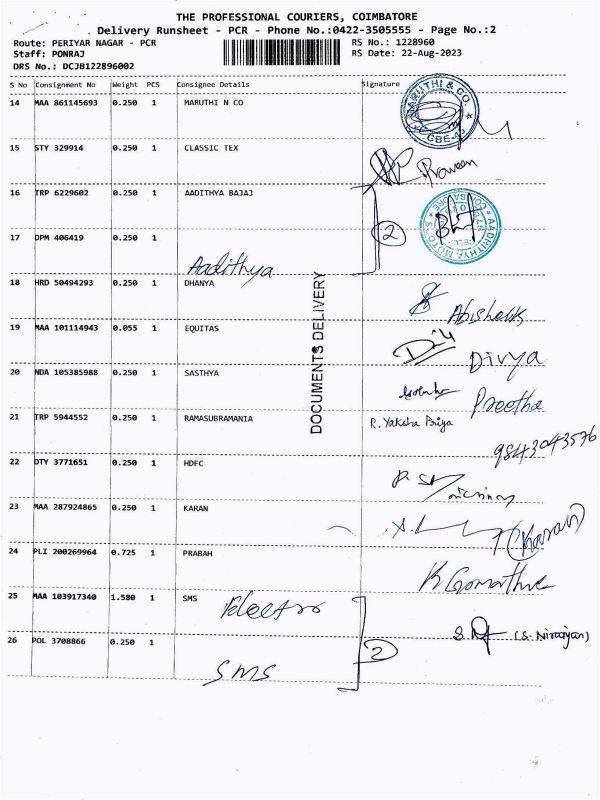 THE PROFESSIONAL COURIERS, COIMBATORE
Delivery Runsheet - PCR - Phone No.:0422-3505555 - Page No.:2
Route: PERIYAR NAGAR - PCR
RS No.: 1228960
Staff: PONRAJ
RS Date: 22-Aug-2023
DRS No.: DCJB122896002
S No Consignment No Weight PCS Consignee Details Signature
14 MAA 861145693 0.250 1 MARUTHI N CO
MARUTHI & CO. CBE-45
15 STY 329914 0.250 1 CLASSIC TEX
Praveen
16 TRP 6229602 0.250 1 AADITHYA BAJAJ
2
17 DPM 406419 0.250 1
Aadithya
18 HRD 50494293 0.250 1 DHANYA
Abishek
DOCUMENTS DELIVERY
19 MAA 101114943 0.055 1 EQUITAS
Divya
20 NDA 105385988 0.250 1 SASTHYA
Preetha
21 TRP 5944552 0.250 1 RAMASUBRAMANIA
R. Yaksha Priya
9843043576
22 DTY 3771651 0.250 1 HDFC
23 MAA 287924865 0.250 1 KARAN
(Karan)
24 PLI 200269964 0.725 1 PRABAH
K Gomathi
25 MAA 103917340 1.580 1 SMS
Electro
S. (S. Niranjan)
26 POL 3708866 0.250 1
2
SMS